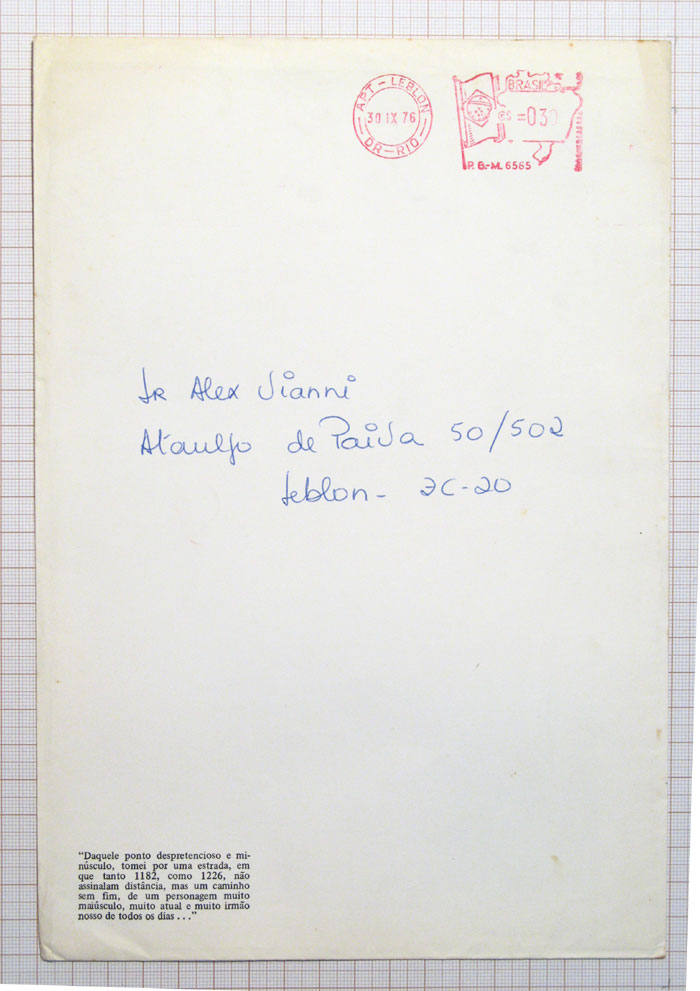 APT - LEBLON
30 IX 76
DR - RIO
BRASIL
=030
P. B.-M. 6565
Sr Alex Vianni
Ataulfo de Paiva 50/502
Leblon - ZC-20
“Daquele ponto despretencioso e mi-
núsculo, tomei por uma estrada, em
que tanto 1182, como 1226, não
assinalam distância, mas um caminho
sem fim, de um personagem muito
maiúsculo, muito atual e muito irmão
nosso de todos os dias . . .”